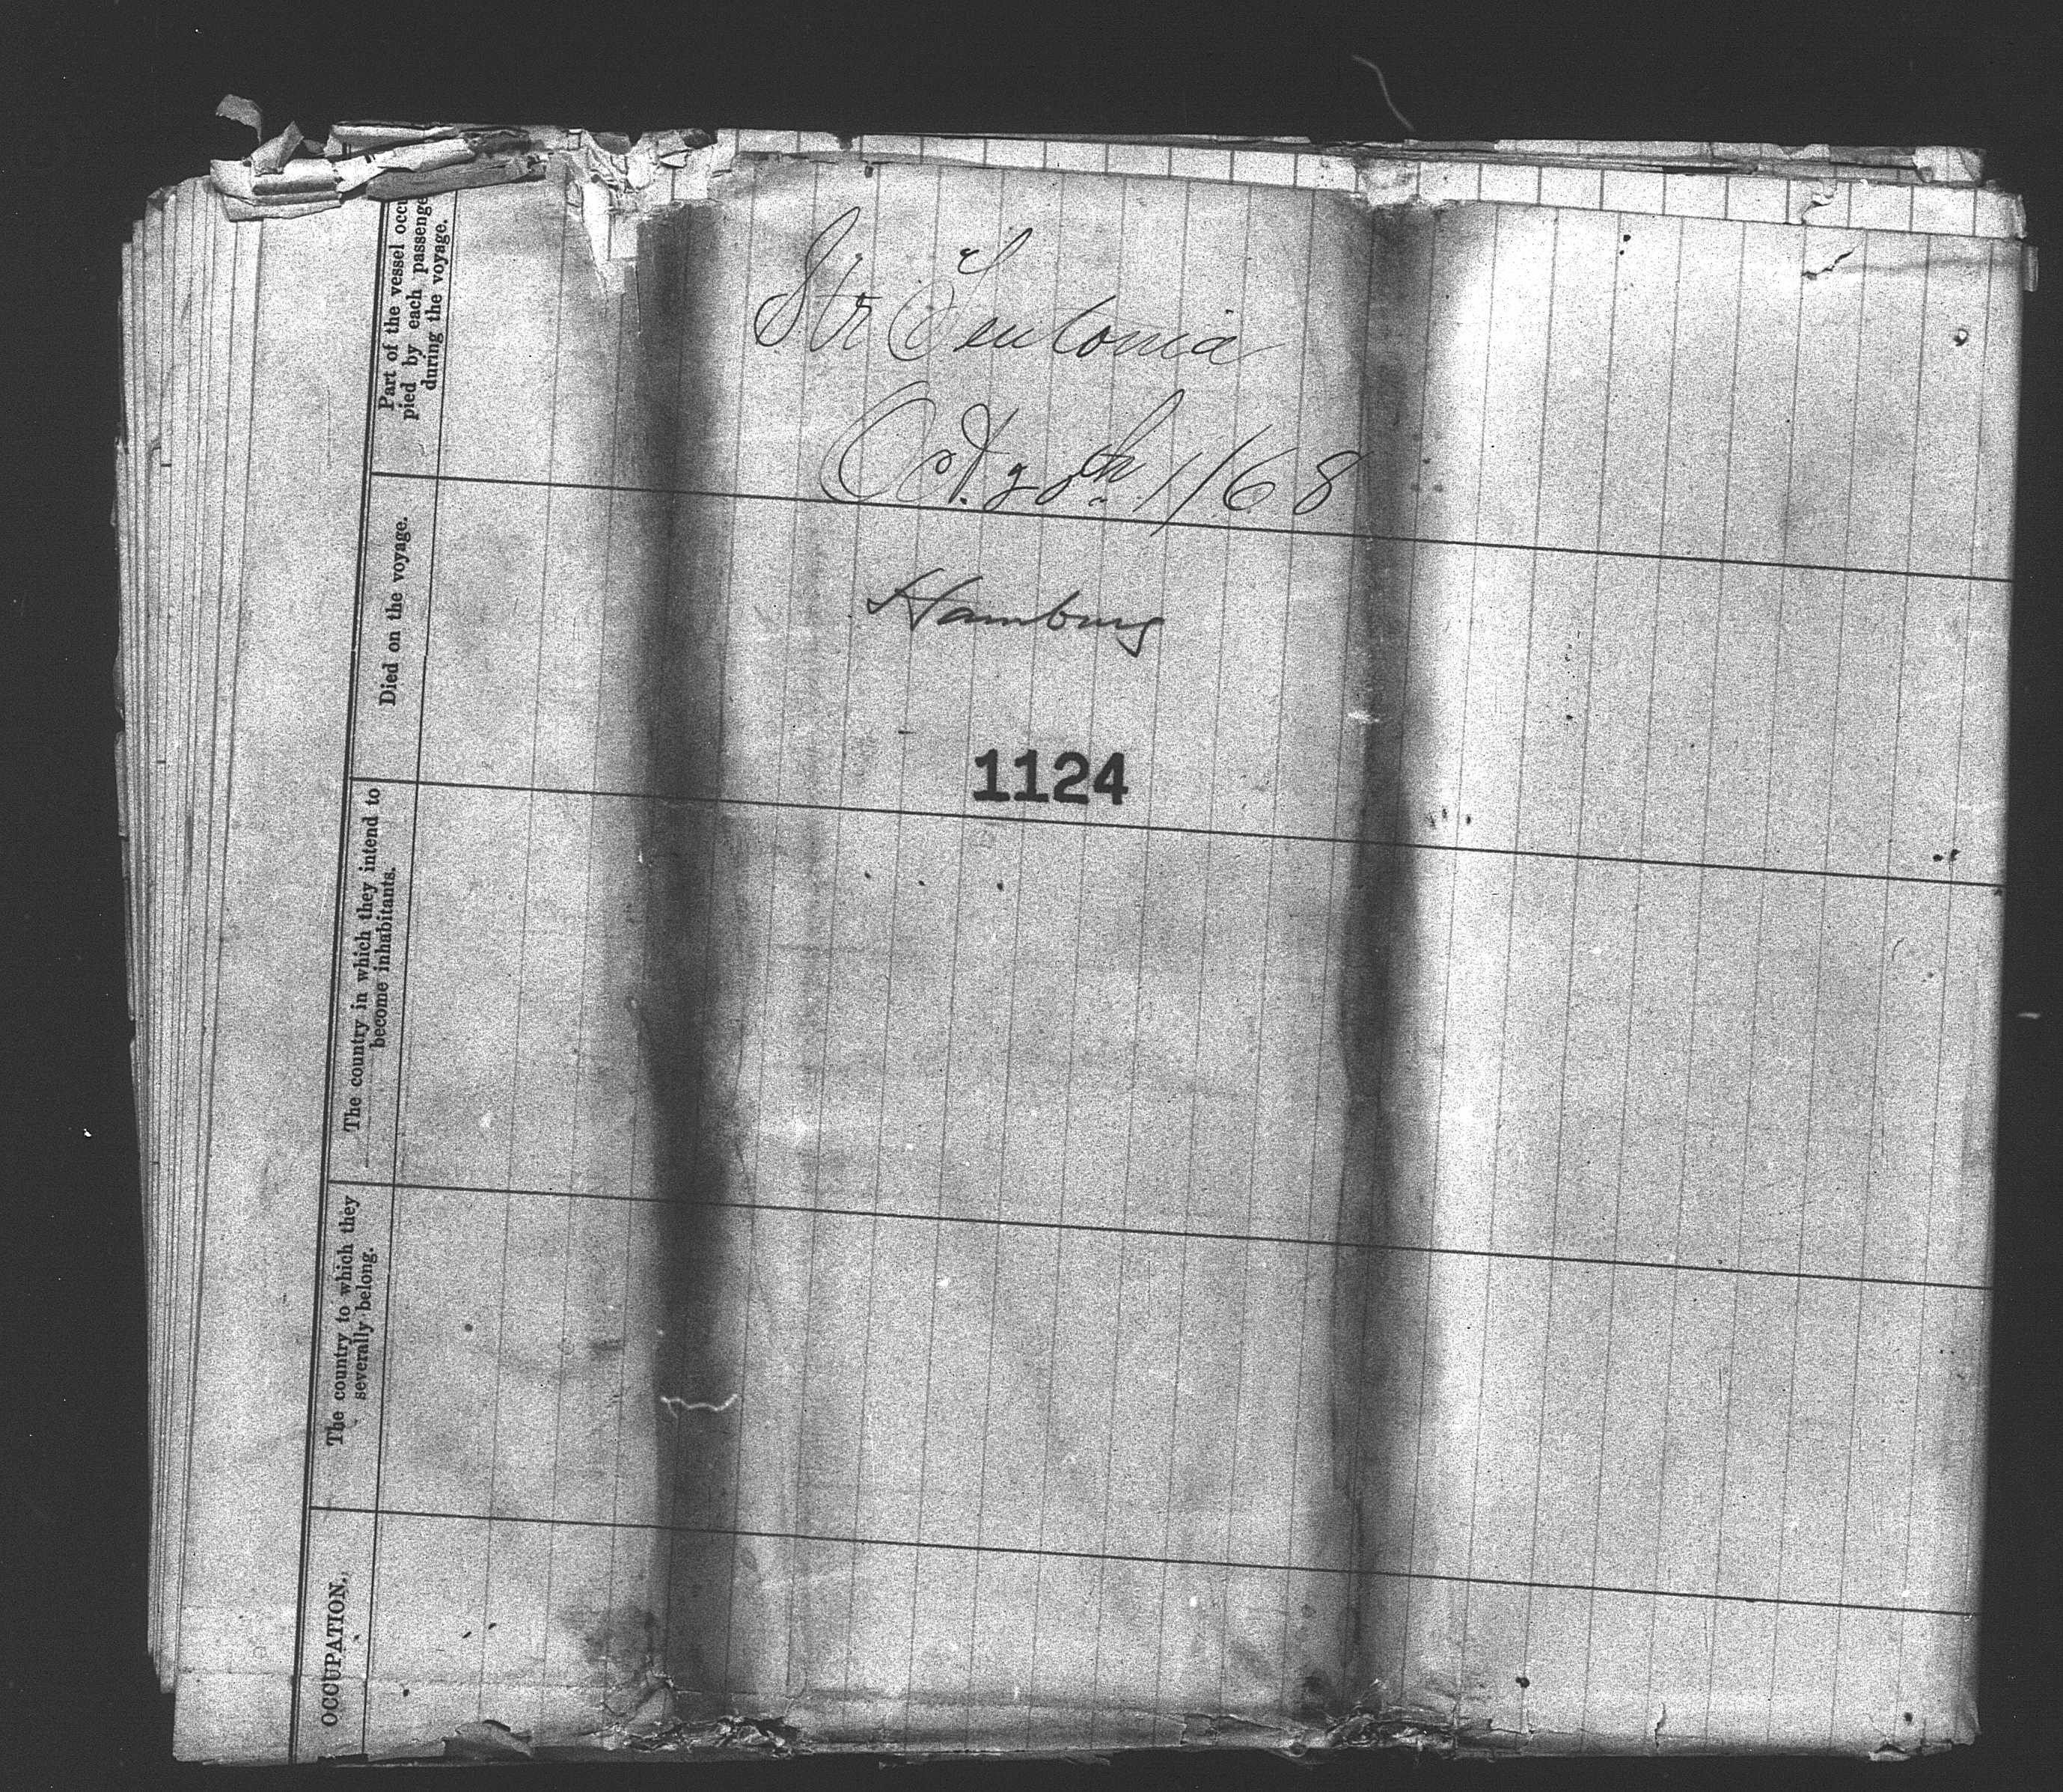 Str Teutonia
Oct. 28th 1/68
Hamburg
1124
Part of the vessel occu
pied by each passenge
during the voyage.
Died on the voyage.
The country in which they intend to
become inhabitants.
The country to which they
severally belong.
OCCUPATION.